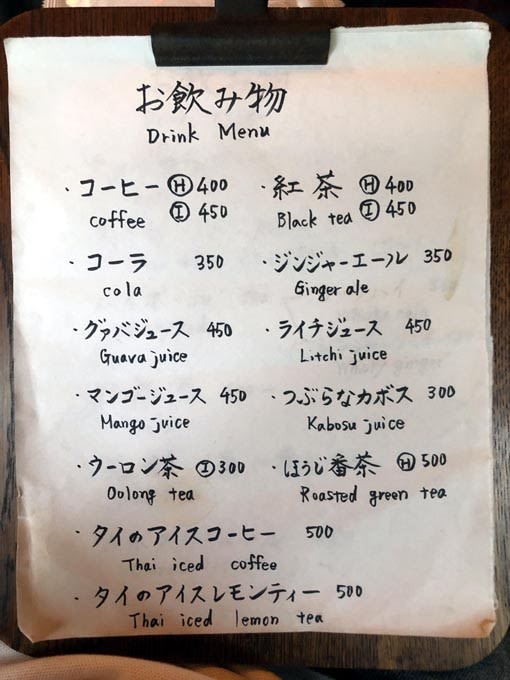 お飲み物
Drink Menu
・コーヒー Ⓗ 400
Ⓘ 450
coffee
・紅茶 Ⓗ 400
Ⓘ 450
Black tea
・コーラ 350
cola
・ジンジャーエール 350
Ginger ale
・グァバジュース 450
Guava juice
・ライチジュース 450
Litchi juice
・マンゴージュース 450
Mango juice
・つぶらなカボス 300
Kabosu juice
・ウーロン茶 Ⓘ 300
Oolong tea
・ほうじ番茶 Ⓗ 500
Roasted green tea
・タイのアイスコーヒー 500
Thai iced coffee
・タイのアイスレモンティー 500
Thai iced lemon tea